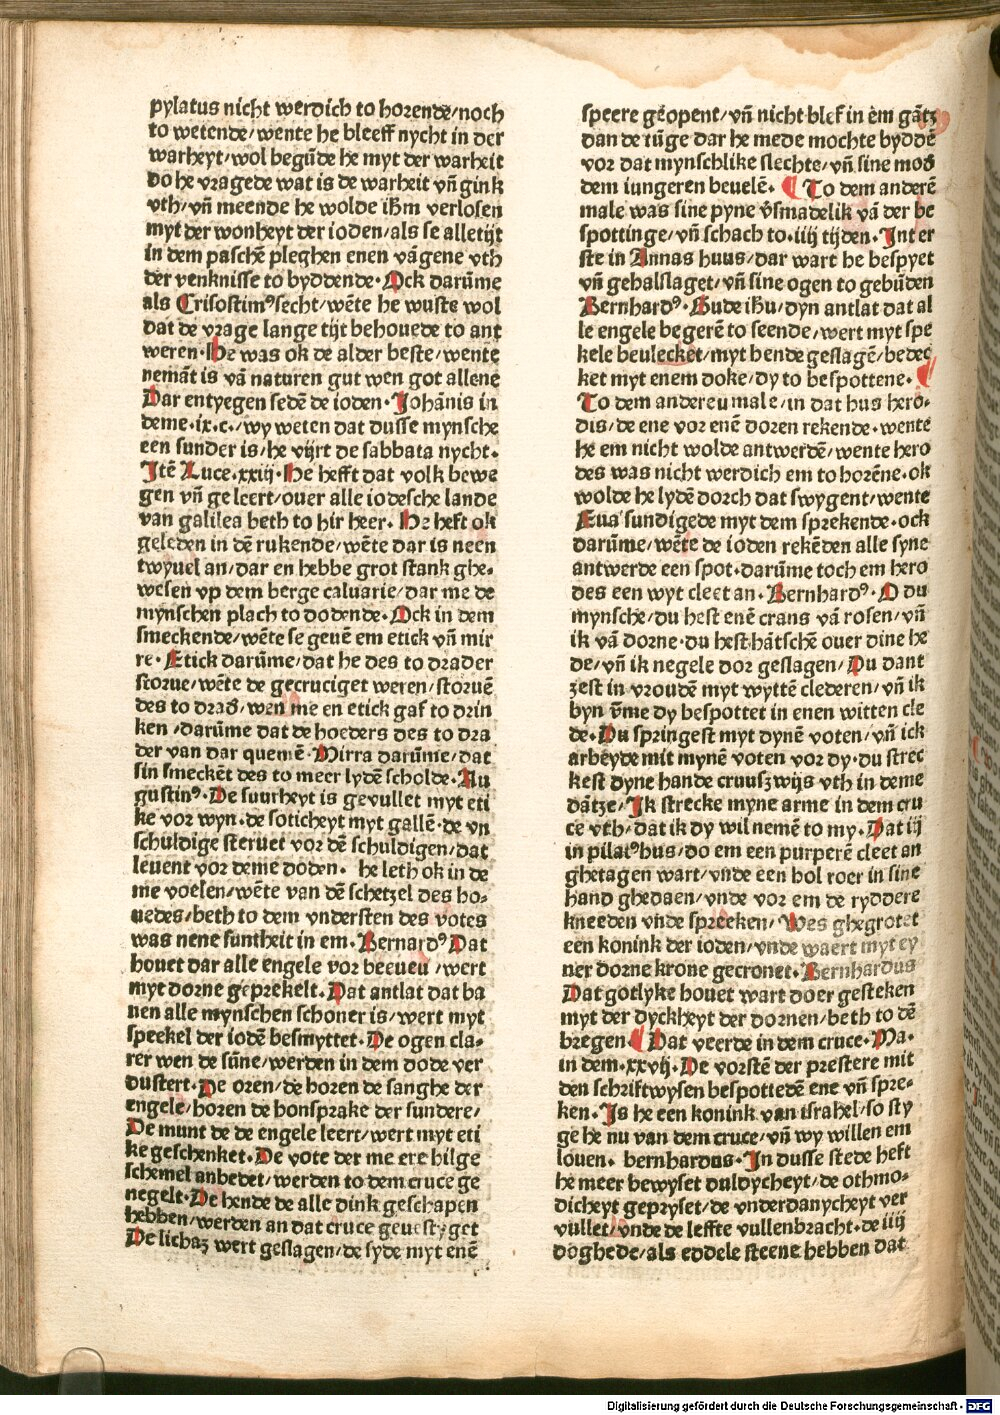 pylatus nicht werdich to horende/noch
to wetende/wente he bleeff nycht in der
warheyt/wol begūde he myt der warheit
do he vragede wat is de warheit vñ gink
vth/vñ meende he wolde ihm verlosen
myt der wonheyt der ioden/als se alletijt
in dem paschē pleghen enen vāgene vth
der venknisse to byddende. Ock darūme
als Crisostimꝰ secht/wēte he wuste wol
dat de vrage lange tijt behouede to ant
weren. He was ok de alder beste/wente
nemāt is vā naturen gut wen got allene
Dar entyegen sedē de ioden. Johānis in
deme.ix.c./wy weten dat dusse mynsche
een sunder is/he vijrt de sabbata nycht.
Jtē Luce.xxiij. He hefft dat volk bewe
gen vñ geleert/ouer alle iodesche lande
van galilea beth to hir heer. He heft ok
geleden in dē rukende/wēte dar is neen
twyuel an/dar en hebbe grot stank ghe-
wesen vp dem berge caluarie/dar me de
mynschen plach to dodende. Ock in dem
smeckende/wēte se geuē em etick vñ mir
re. Etick darūme/dat he des to drader
storue/wēte de gecruciget weren/storuē
des to drad/wen me en etick gaf to drin
ken/darūme dat de hoeders des to dra
der van dar quemē. Mirra darūme/dat
sin smeckēt des to meer lydē scholde. Au
gustinꝰ. De suurheyt is gevullet myt eti
ke vor wyn. de soticheyt myt gallē. de vn
schuldige steruet vor dē schuldigen/dat
leuent vor deme doden. he leth ok in de
me voelen/wēte van dē schetzel des ho-
uedes/beth to dem vndersten des votes
was nene suntheit in em. Bernardꝰ Dat
houet dar alle engele vor beeueu/wert
myt dorne geprekelt. Dat antlat dat ba
nen alle mynschen schoner is/wert myt
speekel der iodē besmyttet. De ogen cla-
rer wen de sūne/werden in dem dode ver
dustert. De oren/de horen de sanghe der
engele/horen de honsprake der sundere/
De munt de de engele leert/wert myt eti
ke geschenket. De vote der me ere hilge
schemel anbedet/werden to dem cruce ge
negelt. De hende de alle dink geschapen
hebben/werden an dat cruce geuestyget
De lichaz wert geslagen/de syde myt enē
speere geopent/vñ nicht blef in em gātz
dan de tūge dar he mede mochte byddē
vor dat mynschlike slechte/vñ sine mod
dem iungeren beuelē. ¶ To dem anderē
male was sine pyne v̄smadelik vā der be
spottinge/vñ schach to.iiij tijden. Jnt er
ste in Annas huus/dar wart he bespyet
vñ gehalslaget/vñ sine ogen to gebūden
Bernhardꝰ. Bude ihu/dyn antlat dat al
le engele begerē to seende/wert myt spe
kele beulecket/myt hende geslagē/bedec
ket myt enem doke/dy to bespottene. ¶
To dem andereu male/in dat hus hero-
dis/de ene vor enē doren rekende. wente
he em nicht wolde antwerdē/wente hero
des was nicht werdich em to horēne. ok
wolde he lydē dorch dat swygent/wente
Eua sundigede myt dem sprekende. ock
darūme/wēte de ioden rekēden alle syne
antwerde een spot. darūme toch em hero
des een wyt cleet an. Bernhardꝰ. O du
mynsche/du hest enē crans vā rosen/vñ
ik vā dorne. du hest hātschē ouer dine he
de/vñ ik negele dor geslagen/Du dant
zest in vroudē myt wyttē clederen/vñ ik
byn v̄me dy bespottet in enen witten cle
de. Du springest myt dynē voten/vñ ick
arbeyde mit mynē voten vor dy. du strec
kest dyne hande cruuszwijs vth in deme
dātze/Jk strecke myne arme in dem cru
ce vth/dat ik dy wil nemē to my. Dat iij
in pilatꝰ hus/do em een purperē cleet an
ghetagen wart/vnde een hol roer in sine
hand ghedaen/vnde vor em de ryddere
kneeden vnde spreeken/Wes ghegrotet
een konink der ioden/vnde waert myt ey
ner dorne krone gecronet. Bernhardus
Dat gotlyke houet wart doer gesteken
myt der dyckheyt der dornen/beth to dē
bregen. ¶ Dat veerde in dem cruce. Ma-
in dem.xxvij. De vorstē der prestere mit
den schriftwysen bespottedē ene vñ spre-
ken. Js he een konink van israhel/so sty
ge he nu van dem cruce/vñ wy willen em
louen. bernhardus. Jn dusse stede heft
he meer bewyset duldycheyt/de othmo-
dicheyt gepryset/de vnderdanycheyt ver
vullet/vnde de leffte vullenbracht. de iiij
doghede/als eddele steene hebben dat
Digitalisierung gefördert durch die Deutsche Forschungsgemeinschaft - DFG